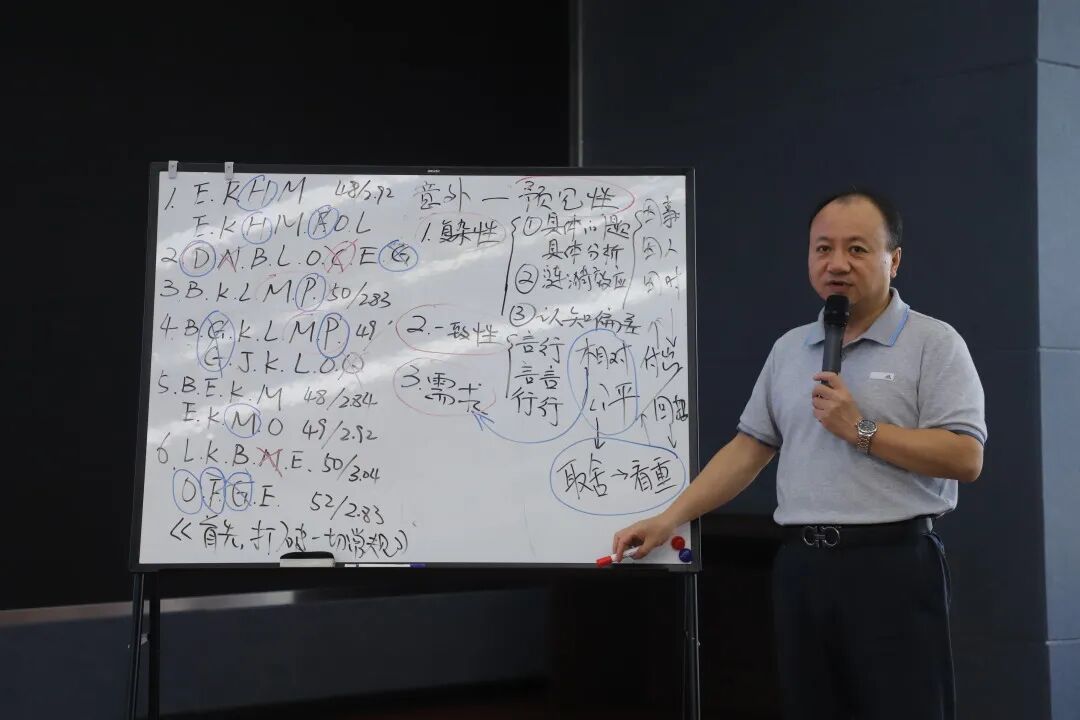 1. E. K. H. M 48/2.92
E. K. H. M. A. O. L
2. D. N. B. L. O. C. E. G
3. B. K. L M P. 50/283
4. B. G. K. L M P. 49
G. J. K. L. O.
5. B. E. K. M 48/284
E. K. M. O 49/2.92
6. L. K. B. N. E. 50/3.04
O. F. G. E. 52/2.83
《首先,打破一切常规》
意外 — 预见性
1. 复杂性
①具体问题
具体分析
②涟漪效应
③认知偏差
因事
因人
因时
2. 一致性
言行
言言
行行
3. 需求
相对
公平
付出
回报
取舍→看重